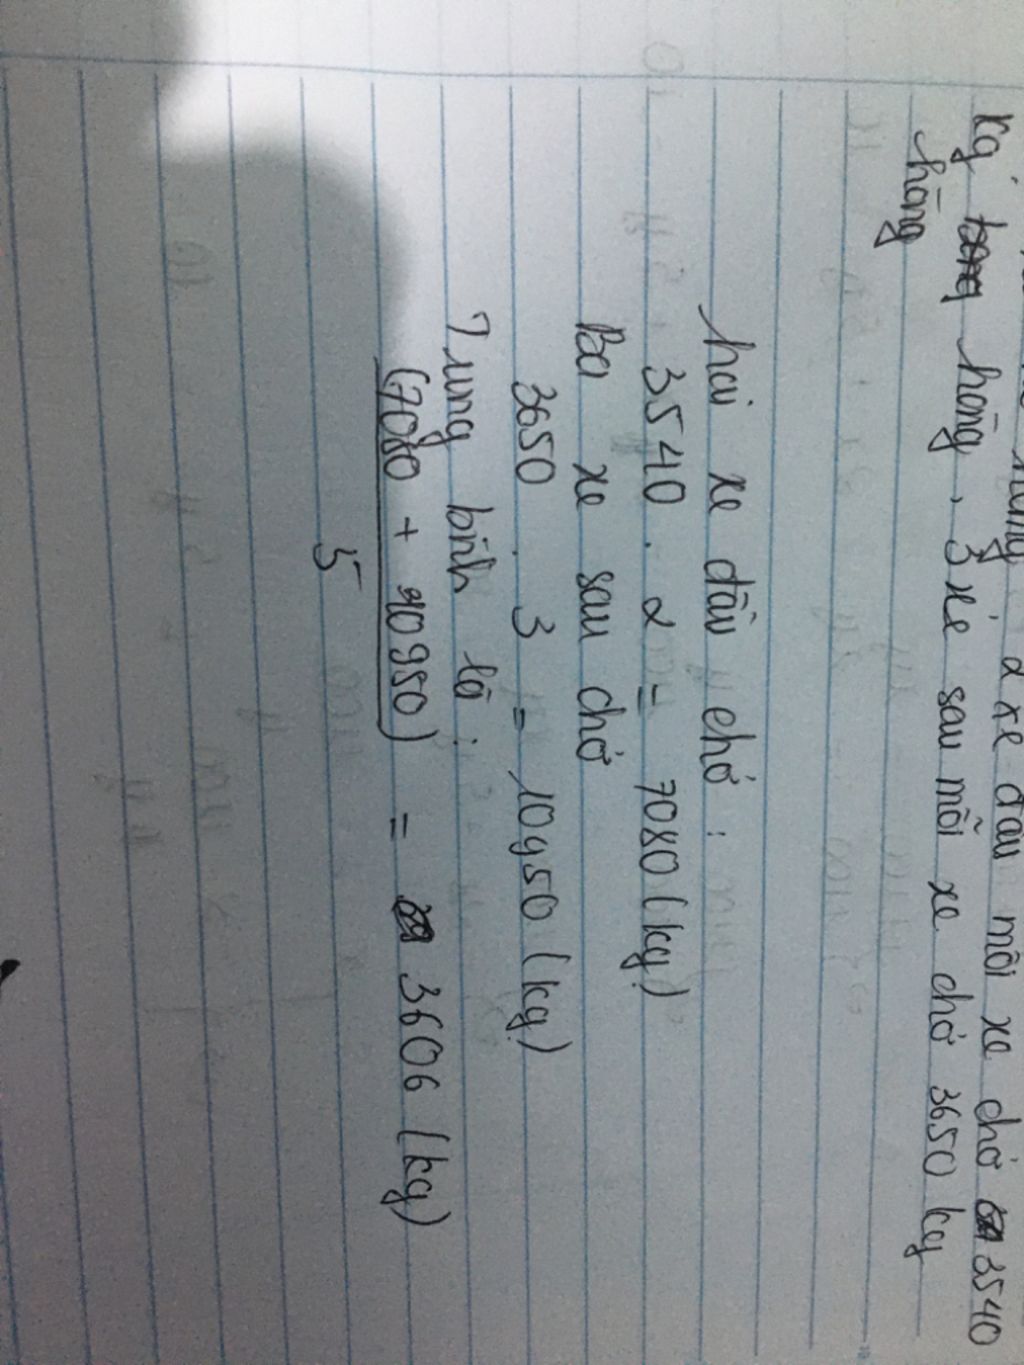 2 xe đầu mỗi xe chở 3540
kg hàng, 3 xe sau mỗi xe chở 3650 kg
hàng
hai xe đầu chở :
3540 . 2 = 7080 (kg)
Ba xe sau chở
3650 . 3 = 10950 (kg)
Trung bình là :
(7080 + 10950) = 3606 (kg)
5